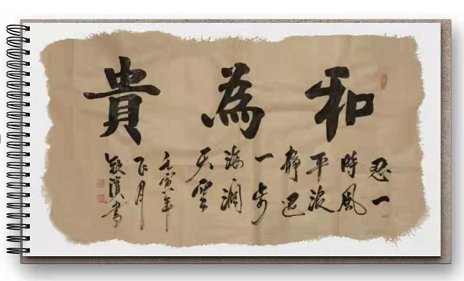 和為貴
忍一
時風
平浪
靜退
一步
海闊
天空
壬寅年
月
書